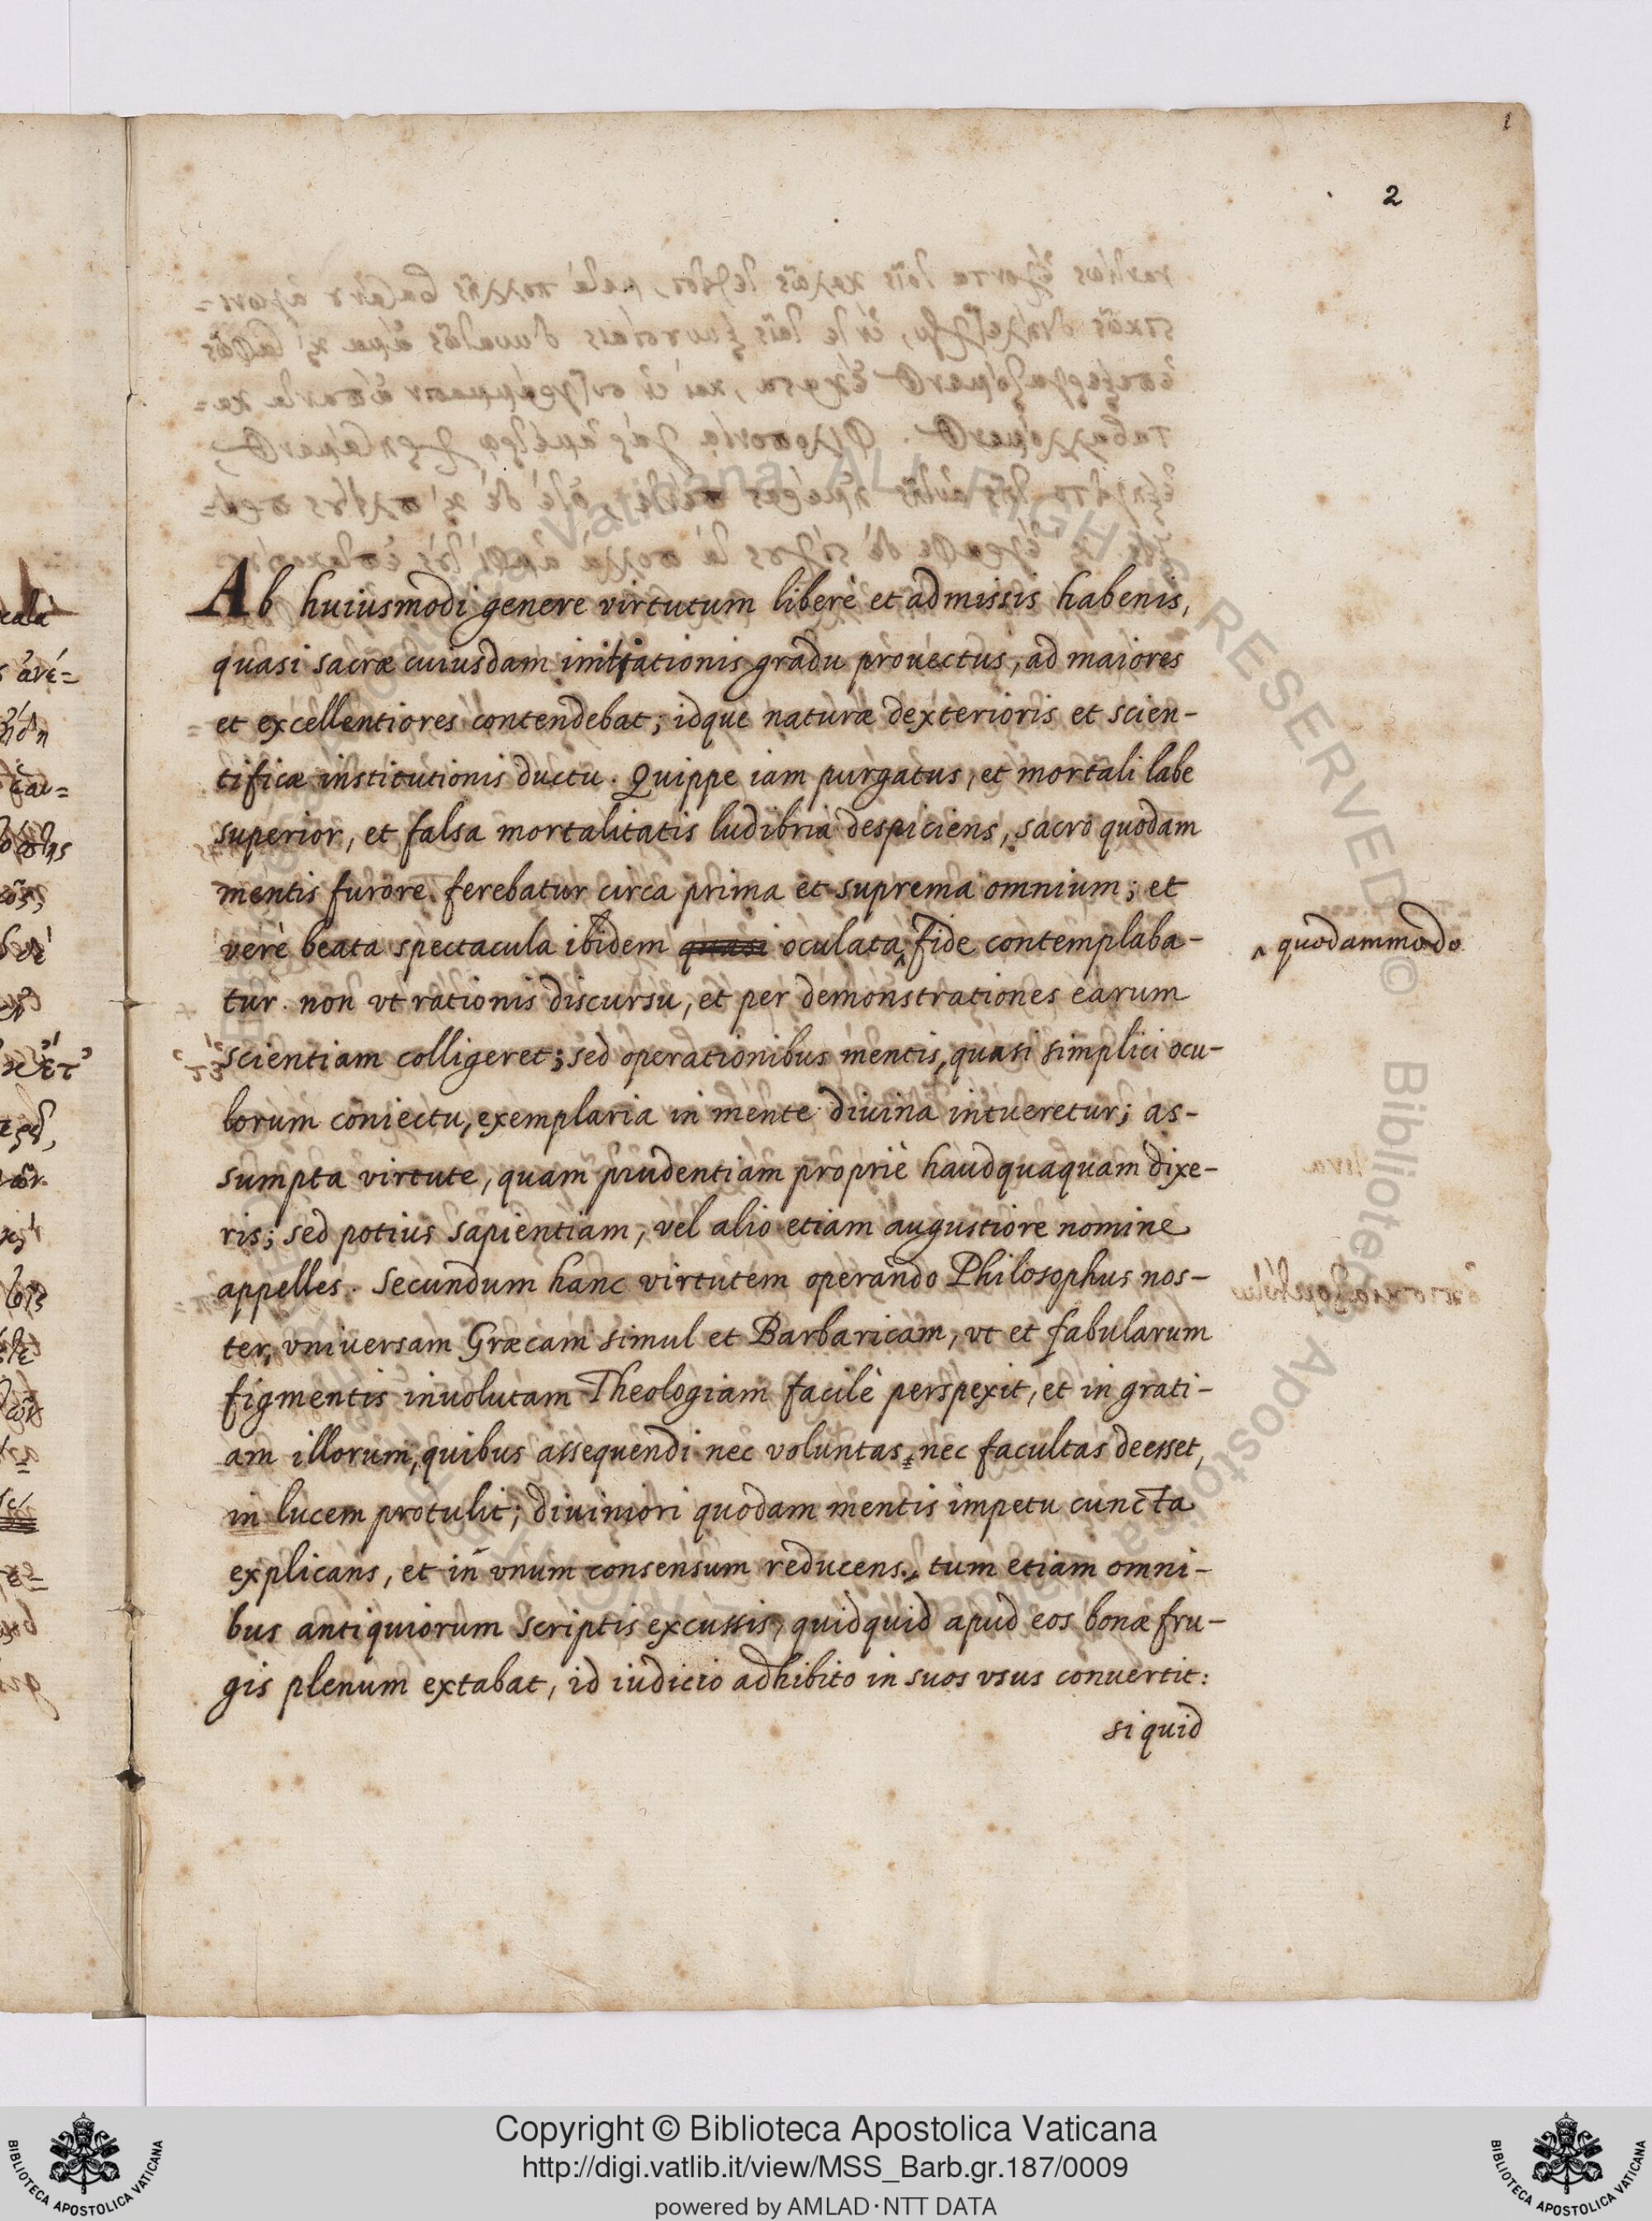 1
2
Ab huiusmodi genere virtutum liberè et admissis habenis,
quasi sacræ cuiusdam initiationis gradu prouectus, ad maiores
et excellentiores contendebat; idque naturæ dexterioris et scien-
tificæ institutionis ductu. Quippe iam purgatus, et mortali labe
superior, et falsa mortalitatis ludibria despiciens, sacro quodam
mentis furore ferebatur circa prima et suprema omnium; et
verè beata spectacula ibidem quasi oculata ‸ fide contemplaba-
‸ quodammodo
tur. non vt rationis discursu, et per demonstrationes earum
scientiam colligeret; sed operationibus mentis, quasi simplici ocu-
lorum coniectu, exemplaria in mente diuina intueretur; as-
sumpta virtute, quam prudentiam propriè haudquaquam dixe-
ris; sed potius sapientiam, vel alio etiam augustiore nomine
appelles. Secundum hanc virtutem operando Philosophus nos-
ter, vniuersam Græcam simul et Barbaricam, vt et fabularum
figmentis inuolutam Theologiam facilè perspexit, et in grati-
am illorum, quibus assequendi nec voluntas, nec facultas deesset,
in lucem protulit; diuiniori quodam mentis impetu cuncta
explicans, et in vnum consensum reducens., tum etiam omni-
bus antiquiorum scriptis excussis, quidquid apud eos bonæ fru-
gis plenum extabat, id iudicio adhibito in suos vsus conuertit:
si quid
Copyright © Biblioteca Apostolica Vaticana
http://digi.vatlib.it/view/MSS_Barb.gr.187/0009
powered by AMLAD·NTT DATA
BIBLIOTECA APOSTOLICA VATICANA
BIBLIOTECA APOSTOLICA VATICANA